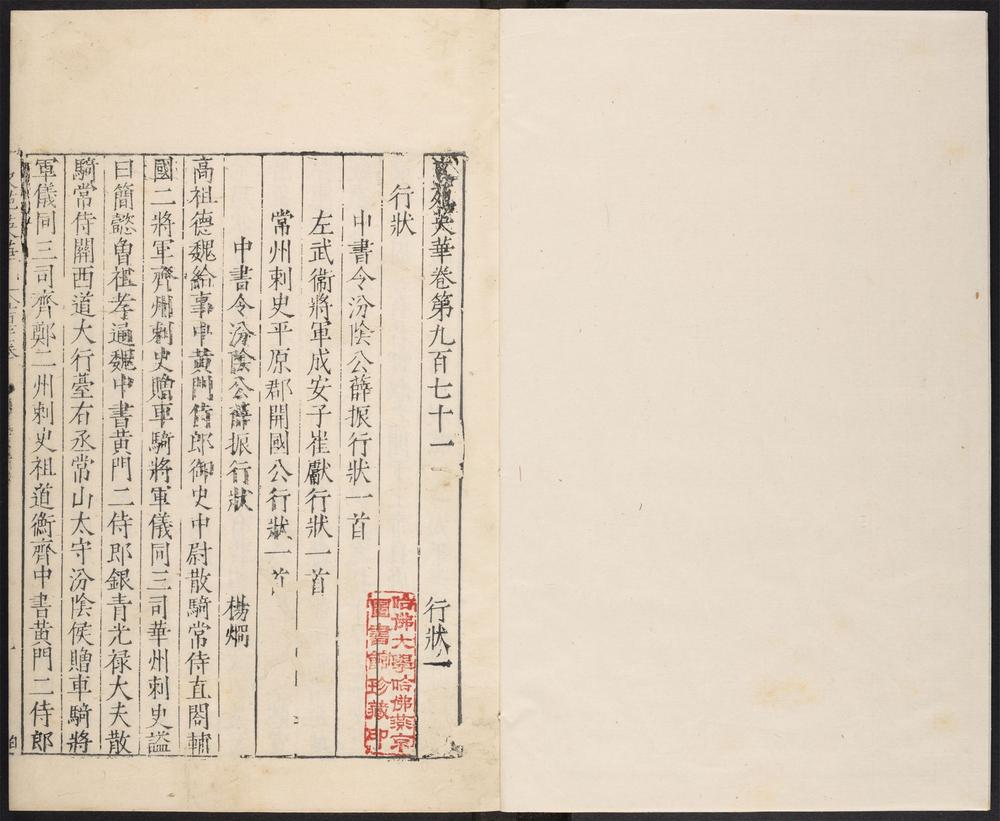 文苑英華卷第九百七十一 行狀一
行狀
中書令汾陰公薛振行狀一首
左武衞將軍成安子崔獻行狀一首
常州刺史平原郡開國公行狀一首
中書令汾陰公薛振行狀 楊烱
高祖德魏給事中黃門侍郎御史中尉散騎常侍直閤輔
國二將軍齊州刺史贈車騎將軍儀同三司華州刺史謚
曰簡懿曾祖孝通魏中書黃門二侍郎銀青光禄大夫散
騎常侍關西道大行臺右丞常山太守汾陰侯贈車騎將
軍儀同三司齊鄭二州刺史祖道衡齊中書黃門二侍郎
哈佛大學哈佛燕京
圖書館珍藏印